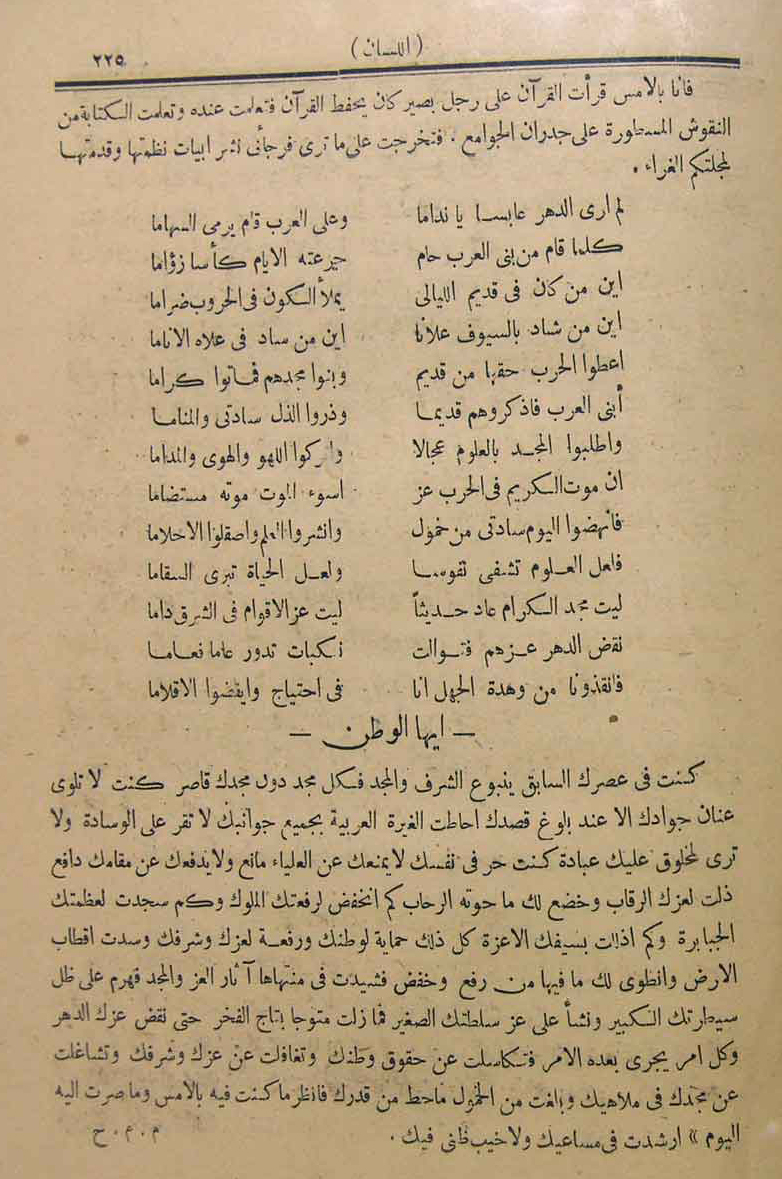 ٢٢٥
( اللسان )
فانا بالامس قرأت القرآن على رجل بصير كان يحفظ القرآن فتعلمت عنده وتعلمت الكتابة من
النقوش المسطورة على جدران الجوامع . فتخرجت على ما ترى فرجائى نشر ابيات نظمتها وقدمتها
لمجلتكم الغراء .
لم ارى الدهر عابسا يا نداما وعلى العرب قام يرمى السهاما
كلما قام من بنى العرب حام جرعته الايام كأسا زؤاما
اين من كان فى قديم الليالى يملأ الكون فى الحروب ضراما
اين من شاد بالسيوف علانا اين من ساد فى علاه الاناما
اعطوا الحرب حقها من قديم وبنوا مجدهم فماتوا كراما
أبنى العرب فاذكروهم قديما وذروا الذل سادتى والمناما
واطلبوا المجد بالعلوم عجالا واتركوا اللهو والهوى والمداما
ان موت الكريم فى الحرب عز اسوء الموت موته مستضاما
فانهضوا اليوم سادتى من خمول وانشروا العلم واصقلوا الاحلاما
فلعل العلوم تشفى نفوسا ولعل الحياة تبرى السقاما
ليت مجد الكرام عاد حديثاً ليت عز الاقوام فى الشرق داما
نقض الدهر عزهم فتوالت نكبات تدور عاما فعاما
فانقذونا من وهدة الجهل انا فى احتياج وايقضوا الاقلاما
— ايها الوطن —
كنت فى عصرك السابق ينبوع الشرف والمجد فكل مجد دون مجدك قاصر كنت لا تلوى
عنان جوادك الا عند بلوغ قصدك احاطت الغيرة العربية بجميع جوانبك لا تقر على الوسادة ولا
ترى لمخلوق عليك عبادة كنت حر فى نفسك لا يمنعك عن العلياء مانع ولا يدفعك عن مقامك دافع
ذلت لعزك الرقاب وخضع لك ما حوته الرحاب كم انخفض لرفعتك الملوك وكم سجدت لعظمتك
الجبابرة وكم اذلت بسيفك الاعزة كل ذلك حماية لوطنك ورفعة لعزك وشرفك وسدت اقطاب
الارض وانطوى لك ما فيها من رفع وخفض فشيدت فى منتهاها آثار العز والمجد فهرم على ظل
سيطرتك الكبير ونشأ على عز سلطتك الصغير فما زلت متوجا بتاج الفخر حتى نقض عزك الدهر
وكل امر يجرى بعده الامر فتكاسلت عن حقوق وطنك وتغافلت عن عزك وشرفك وتشاغلت
عن مجدك فى ملاهيك وبلغت من الخمول ماحط من قدرك فانظر ما كنت فيه بالامس وما صرت اليه
اليوم » ارشدت فى مساعيك ولا خيب ظنى فيك .
م . م . ح